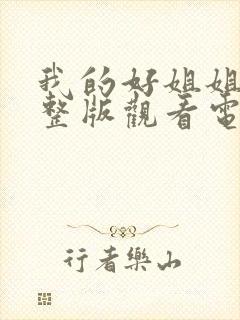 我的好姐姐
整版觀看電
行者樂山